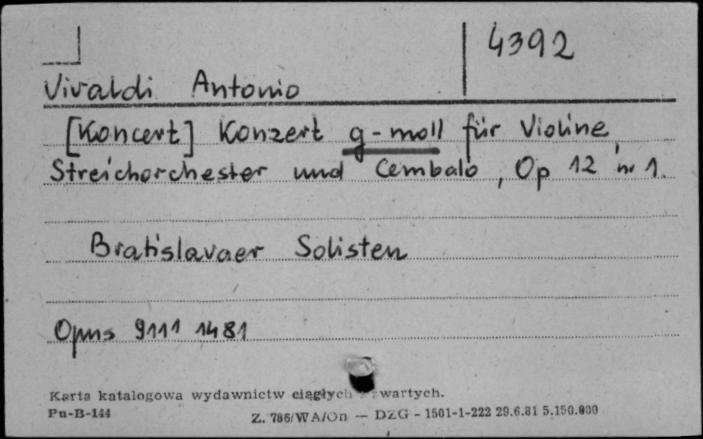 4392
Vivaldi Antonio
[Koncert] Konzert g-moll für Violine,
Streichorchester und Cembalo, Op 12 nr 1.
Bratislavaer Solisten
Opus 9111 1481
Karta katalogowa wydawnictw ciągłych zwartych.
Pu-B-144 Z. 786/WA/On — DZG - 1501-1-222 29.6.81 5.150.000